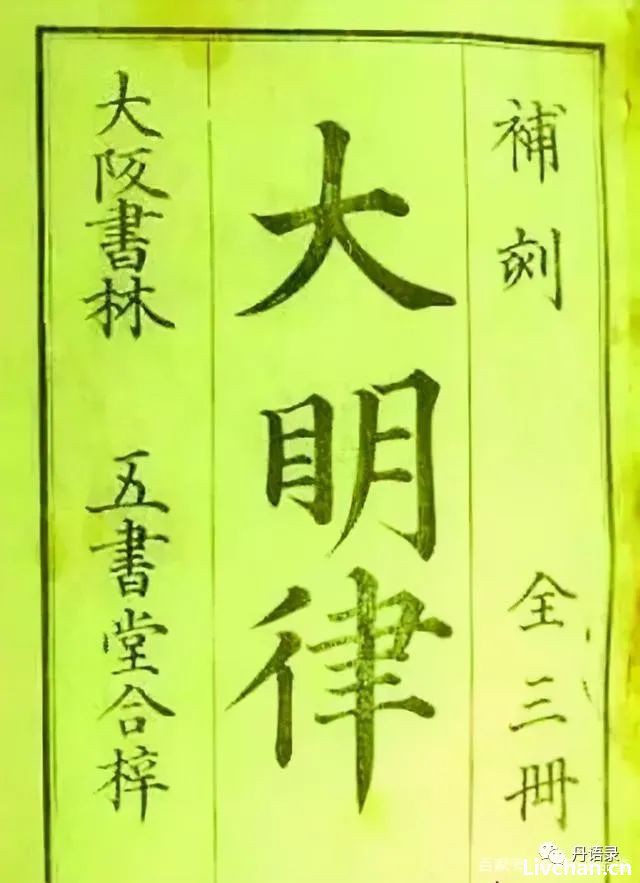 補刻 全三冊
大眀律
大阪書林 五書堂合梓
丹语录
Livchan.cn